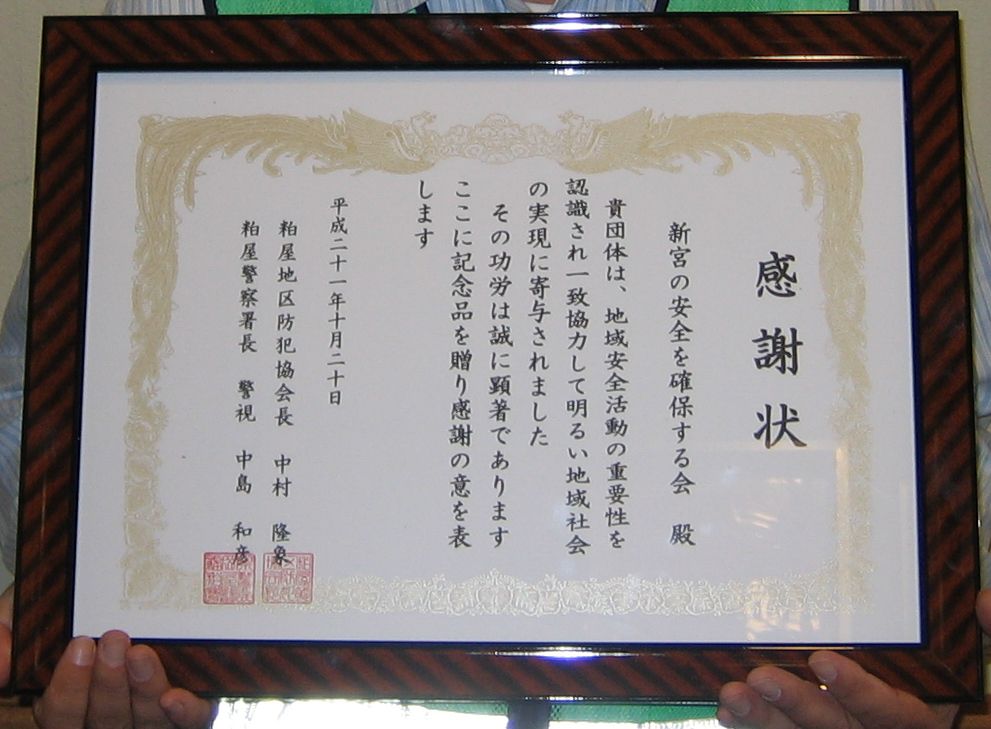 感謝状
新宮の安全を確保する会 殿
貴団体は、地域安全活動の重要性を
認識され一致協力して明るい地域社会
の実現に寄与されました
その功労は誠に顕著であります
ここに記念品を贈り感謝の意を表
します
平成二十一年十月二十日
粕屋地区防犯協会長 中村 隆象
粕屋警察署長 警視 中島 和彦